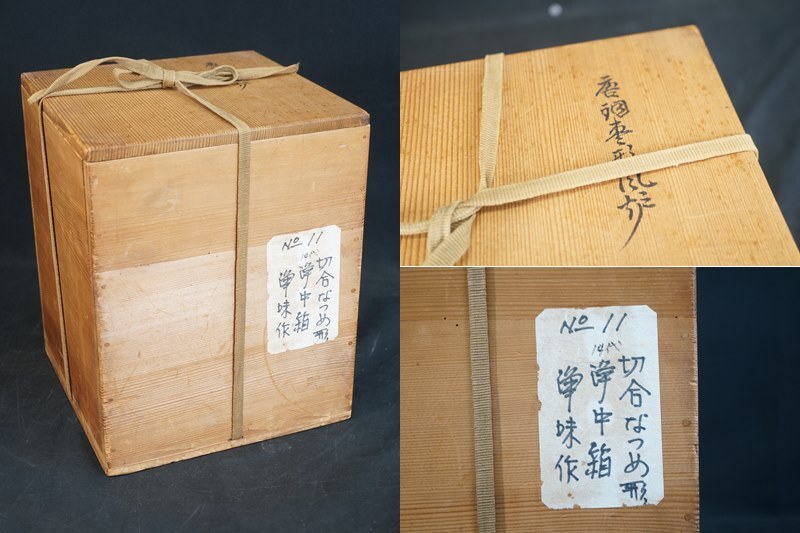 No 11
切合なつめ形
14代
浄中箱
浄味作
唐銅棗形風炉
No 11
14代
切合なつめ形
浄中箱
浄味作